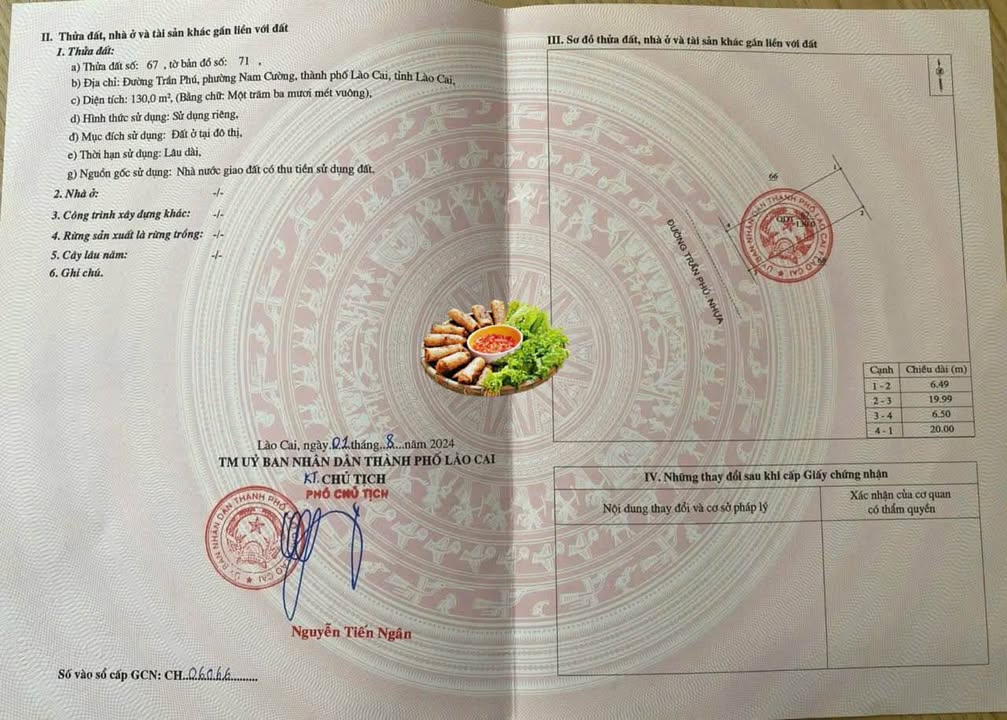 II. Thửa đất, nhà ở và tài sản khác gắn liền với đất
1. Thửa đất:
a) Thửa đất số: 67 , tờ bản đồ số: 71 ,
b) Địa chỉ: Đường Trần Phú, phường Nam Cường, thành phố Lào Cai, tỉnh Lào Cai,
c) Diện tích: 130,0 m², (Bằng chữ: Một trăm ba mươi mét vuông),
d) Hình thức sử dụng: Sử dụng riêng,
đ) Mục đích sử dụng: Đất ở tại đô thị,
e) Thời hạn sử dụng: Lâu dài,
g) Nguồn gốc sử dụng: Nhà nước giao đất có thu tiền sử dụng đất,
2. Nhà ở: -/-
3. Công trình xây dựng khác: -/-
4. Rừng sản xuất là rừng trồng: -/-
5. Cây lâu năm: -/-
6. Ghi chú.
Lào Cai, ngày.01.tháng..8...năm 2024
TM UỶ BAN NHÂN DÂN THÀNH PHỐ LÀO CAI
KT. CHỦ TỊCH
PHÓ CHỦ TỊCH
ỦY BAN NHÂN DÂN THÀNH PHỐ
LÀO CAI
Nguyễn Tiến Ngân
Số vào sổ cấp GCN: CH..06066.........
III. Sơ đồ thửa đất, nhà ở và tài sản khác gắn liền với đất
66
1
2
ỦY BAN NHÂN DÂN THÀNH PHỐ LÀO CAI LÀO CAI
ĐƯỜNG TRẦN PHÚ- NHỰA
Cạnh Chiều dài (m)
1 - 2 6.49
2 - 3 19.99
3 - 4 6.50
4 - 1 20.00
IV. Những thay đổi sau khi cấp Giấy chứng nhận
Nội dung thay đổi và cơ sở pháp lý
Xác nhận của cơ quan
có thẩm quyền